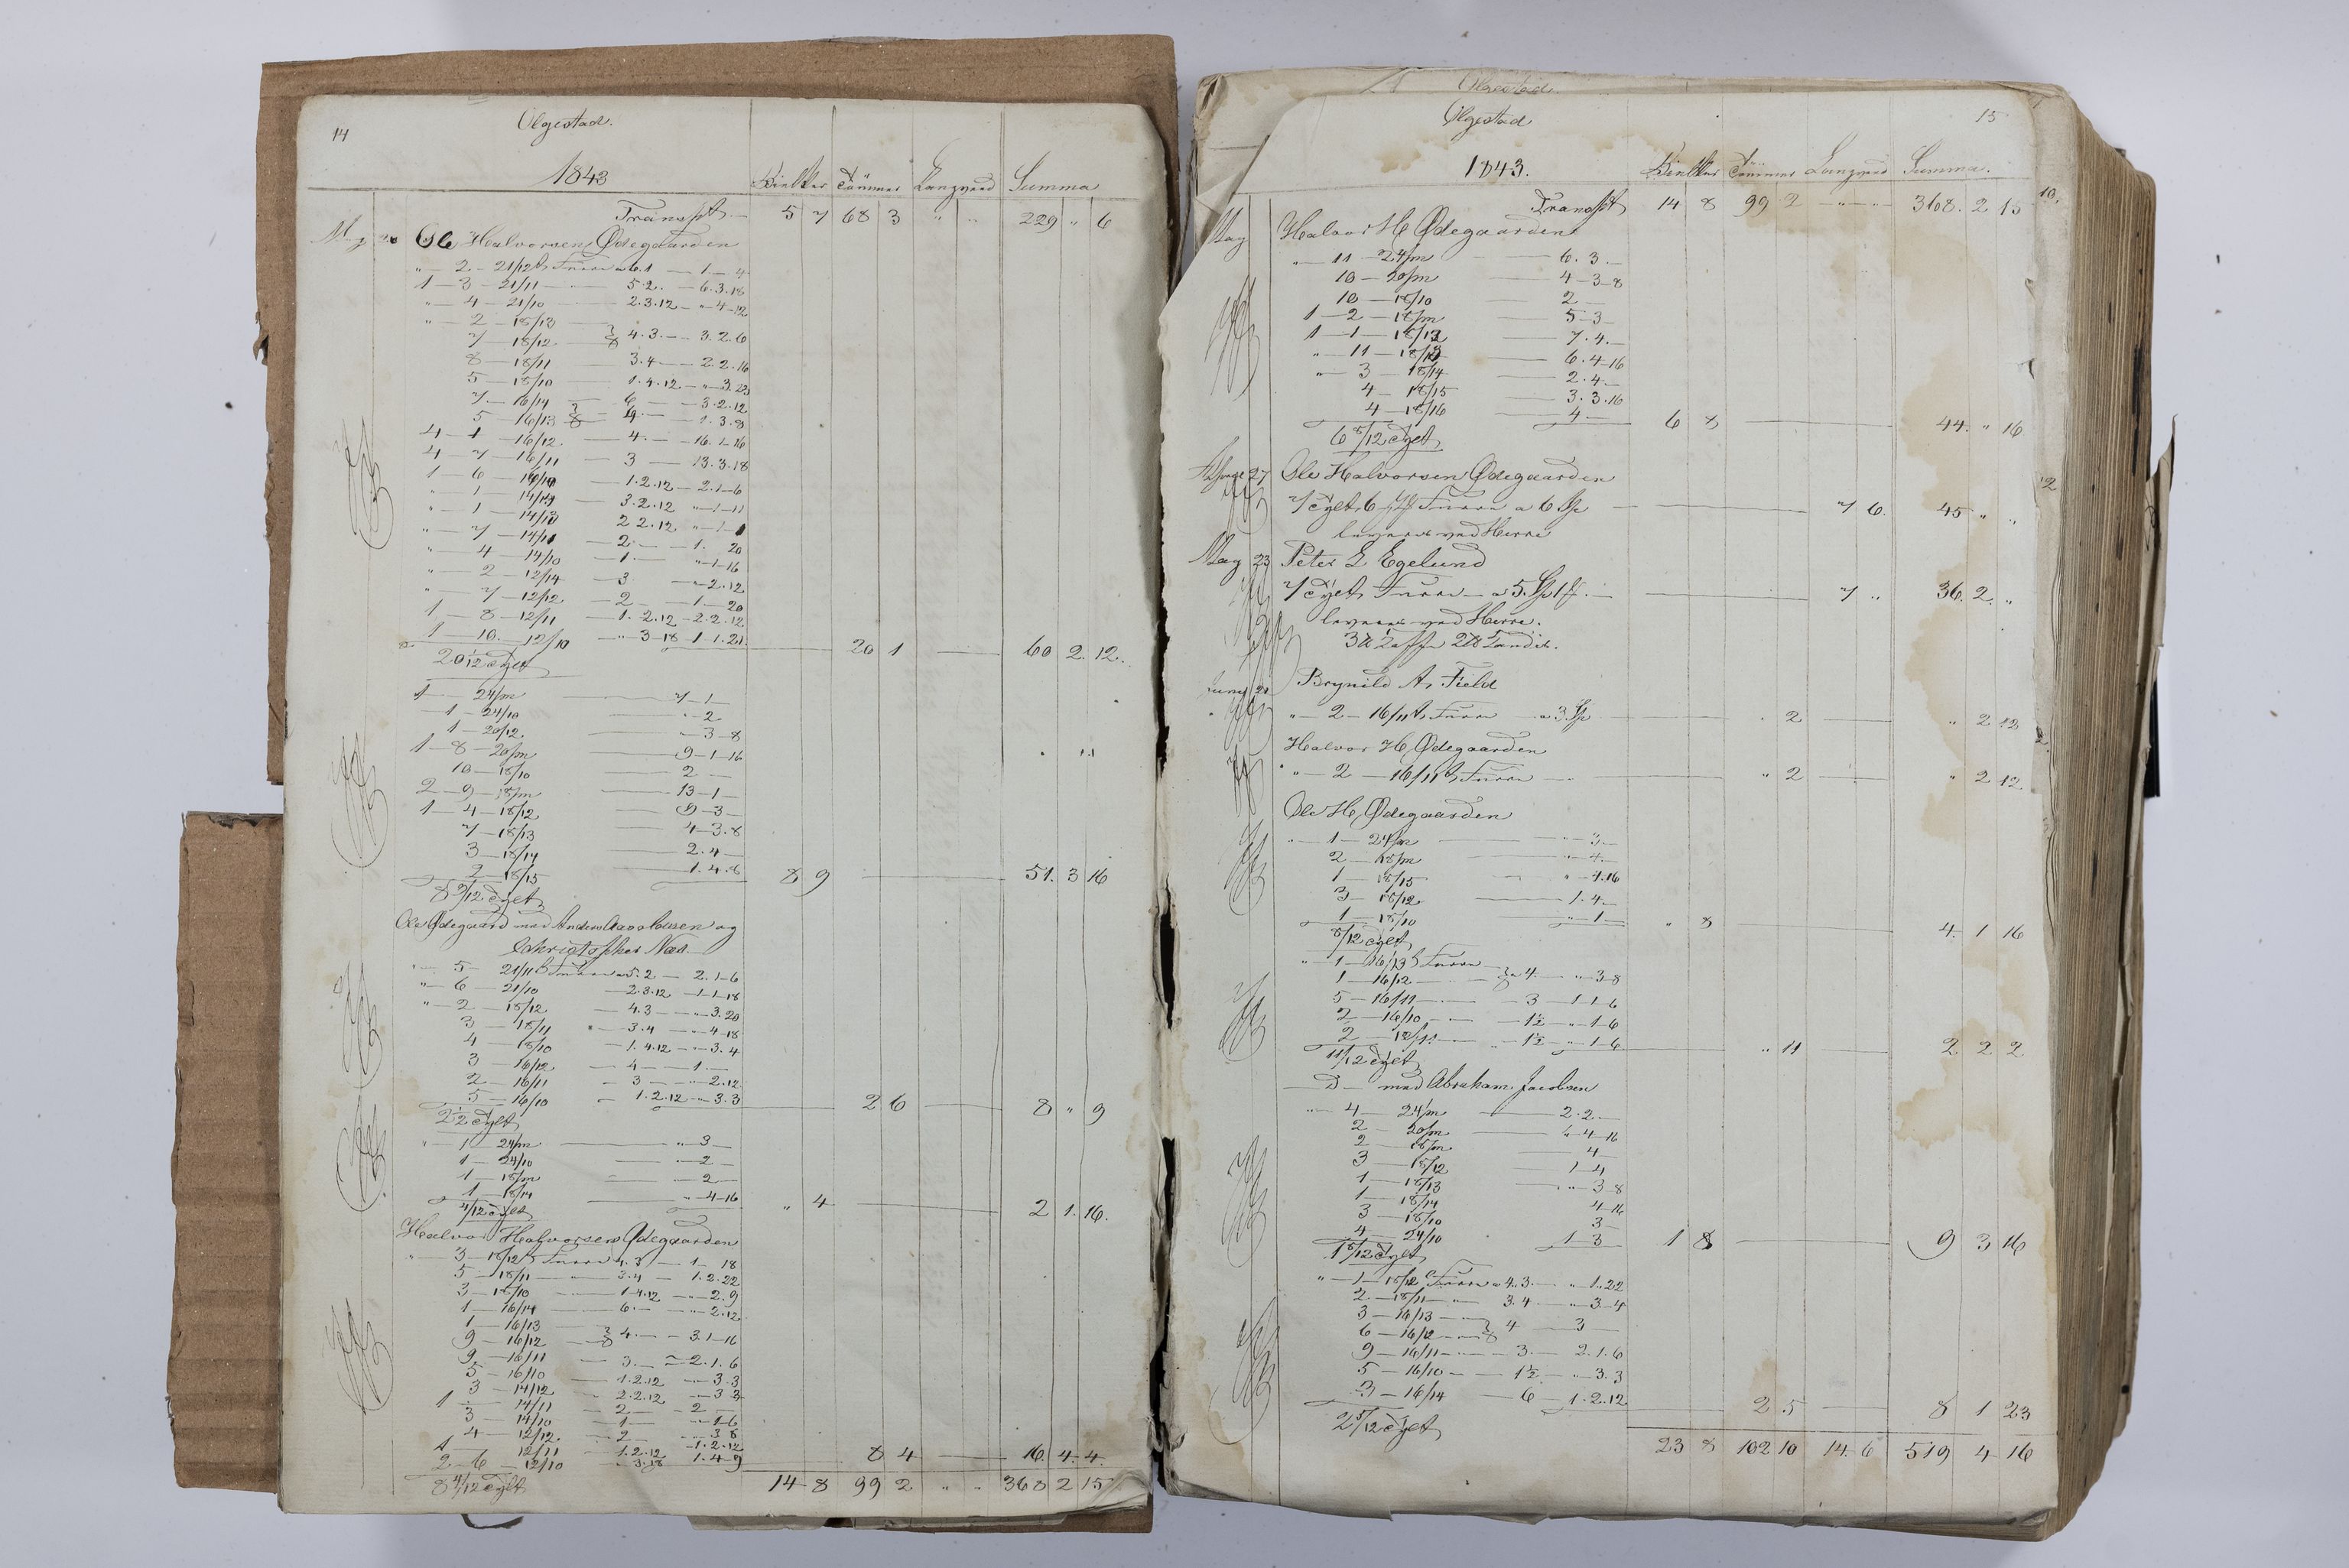 14
Olgestad.
1843
Bielker Tömmer Langved Summa
Transpt 5 7 68 3 " " 229 " 6
May 20 Ole Halvorsen Ødegaarden
" 2 - 21/12 Furu a 6.1 - 1 - 4
1 - 3 - 21/11 - 5.2. - 6.3.18
" 4 - 21/10 2.3.12 - " 4 - 12
" 2 - 18/13
7 - 18/12 4.3. - 3.2.6
8 - 18/11 3.4 - 2.2.16
5 - 18/10 1.4.12 - " 3.23
7 - 16/14 6 - 3.2.12
5 - 16/13 4. - 1.3.8
4 - 1 - 16/12. - 4. - 16.1-16
4 - 7 - 16/11 - 3 - 13.3.18
1 - 6 - 16/10 - 1.2.12 - 2.1-6
" 1 - 3.2.12 " -1-11
" 1 - 14/13 2 2.12 " -1-1
" 7 - 14/11 - 2 - 1. 20
" 4 - 14/10 - 1 - " -1-16
" 2 - 12/14 - 3 - " 2.12
" 7 - 12/12 - 2 - 1 - 20
1 - 8 - 12/11 - 1.2.12 - 2.2.12.
1 - 10. - 12/10 - " 3-18 1-1.21.
20 1/12 Tylt 20 1 60 2. 12.
1 - 24/m 7-1
1 - 24/10 " 2
1 - 20/12. " 3-8
1 - 8 - 20/m 9-1-16
10 - 18/10 2
2 - 9 - 18/m 13-1
1 - 4 - 18/12 9-3
7 - 18/13 4-3.8
3 - 18/14 2.4
2 - 18/15 1.4.8
8 9/12 Tylt 8 9 51. 3 16
Ole Ødegaard med Anders og
Christopher Næs
" 5 - 21/11 Furu a 5.2 - 2.1-6
" 6 - 21/10 - 2.3.12 - 1-1-18
" 2 - 18/12 - 4.3 - " 3.20
3 - 18/11 - 3.4 - " 4-18
4 - 18/10 - 1.4.12 - " 3.4
3 - 16/12 - 4 - 1
2 - 16/11 - 3 - " 2.12
5 - 16/10 - 1.2.12 - " 3.3
2 1/2 Tylt 2 6 8 " 9
" 1 24/m " 3
1 - 24/10 " 2
1 18/m " 2
1 18/14 " 4-16
4/12 Tylt " 4 2 1. 16.
Halvor Halvorsen Ødegaarden
" 3 - 18/12 Furu 4.3 - 1 - 18
5 - 18/11 " 3.4 - 1.2.22
3 - 18/10 1-4.12 - " 2.9
1 - 16/14 6. - " 2.12
1 - 16/13
9 - 16/12 4. - 3.1-16
9 - 16/11 - 3. - 2.1.6
5 - 16/10 - 1.2.12 - " 3.3
3 - 14/12 - 2.2.12 - " 3 3
1 - 14/11 - 2 - 2
3 - 14/10 - 1 - " 1-6
4 - 12/12. - 2 - " 3 8
1 12/11 - 1.2.12 1.2.12
2 - 6 - 12/10 - 3.18 1.4-9
8 4/12 Tylt 8 4 16. 4. 4.
14 8 99 2 " " 368 2 15
Olgestad.
Olgestad
15
1843.
Bielker Tömmer Langved Summa.
Transpt 14 8 99 2 " " 368. 2 15
May Halvor H Ødegaarden
" 11 - 24/m - 6.3
10 - 20/m - 4-3-8
10 - 18/10 - 2
1 - 2 - 18/m - 5-3
1 - 1 - 18/12 - 7.4.
" 11 - - 6.4-16
" 3 - 18/14 - 2.4
4 - 18/15 - 3.3.16
4 - 18/16 - 4
6 8/12 Tylt 6 8 44. " 16
27 Ole Halvorsen Ødegaarden
7 Tylt, 6 Furu a 6 Sp 7 6. 45 " "
leveret ved Herre
May 23 Peter L Egelund
7 Tylt Furu a 5. Sp 7 " 36. 2. "
leveret ved Herre.
Juny Brynild A. Field
" 2 - 16/11 Furu a 3 Sp " 2 " 2 12
Halvor H. Ødegaarden
" 2 - 16/11 Furu " 2 " 2 12
Ole H. Ødegaarden
" 1 - 24/m " 3
2 - 18/m " 4
1 - 18/15 " 4.16
3 - 18/12 1.4
1 - 18/10 " 1
8/12 Tylt " 8 4. 1 16
" 1 - 16/13 Furu
1 - 16/12 a 4. " 3-8
5 - 16/11 - 3 - 1-1-6
2 - 16/10 - 1½ - " 1-6
2 - - 1½ - " 1-6
11/12 Tylt " 11 2 2 2
D med Abraham Jacobsen
" 4 - 24/m 2.2
2 - 20/m " 4-16
2 - 18/m 4
3 - 18/12 1-4
1 - 18/13 " 3-8
1 - 18/14 4-16
3 - 18/10 3
4 - 24/10 1 3
1 8/12 Tylt 1 8 9 3 16
" 1 - 18/12 Furu a 4.3. " 1.22
2 - 18/11 " 3.4 " 3-4
3 - 16/13
6 - 16/12 4 - 3
9 - 16/11 - 3. 2.1.6
5 - 16/10 - 1½ " 3.3
3 - 16/14 - 6 - 1.2.12
2 5/12 Tylt 2 5 8 1 23
23 8 102 10 14. 6 519 4 16